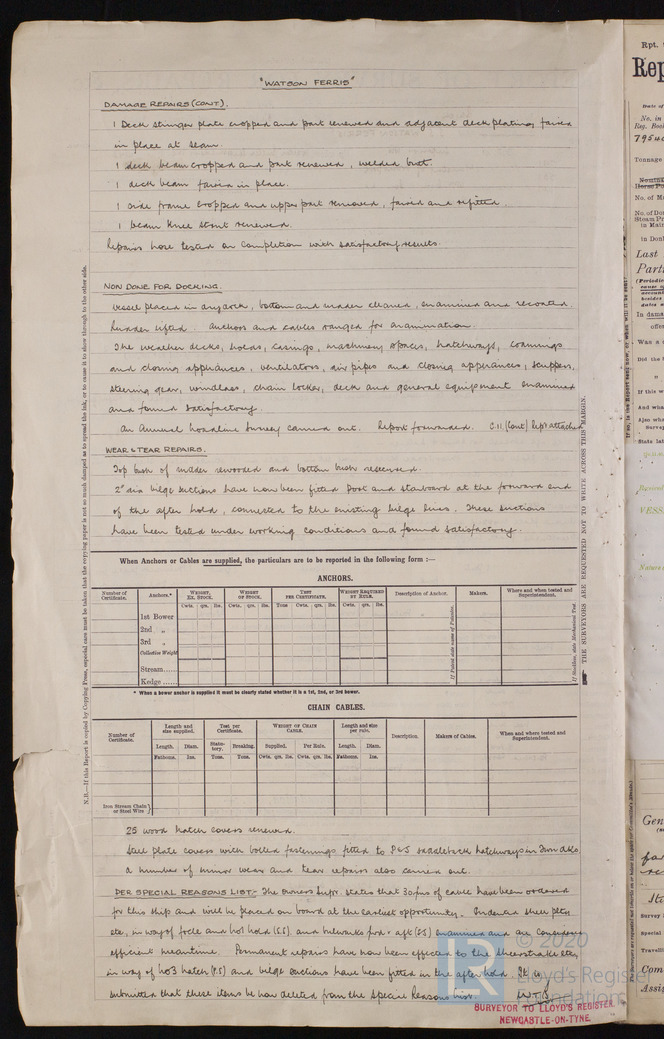 "WATSON FERRIS"
DAMAGE REPAIRS (CONT).
1 Deck stringer plate cropped and part renewed and adjacent deck plating faired
in place at seam.
1 deck beam cropped and part renewed, welded butt.
1 deck beam faired in place.
1 side frame cropped and upper part removed, faired and refitted.
1 beam knee strut renewed.
Repairs hose tested on completion with satisfactory results.
NON DONE FOR DOCKING.
Vessel placed in drydock, bottom and rudder cleaned, examined and recoated,
rudder lifted. Anchors and cables ranged for examination.
The weather decks, holds, casings, machinery spaces, hatchways, coamings
and closing appliances, ventilators, air pipes and closing appliances, scuppers,
steering gear, windlass, chain locker, deck and general equipment examined
and found satisfactory.
An Annual loadline Survey carried out. Report forwarded. C.11 (Cont) Rept attached
WEAR & TEAR REPAIRS.
Top bush of rudder rewooded and bottom bush renewed.
2" dia bilge suctions have now been fitted Port and starboard at the forward end
of the after hold, connected to the existing bilge lines. These suctions
have been tested under working conditions and found satisfactory.
When Anchors or Cables are supplied, the particulars are to be reported in the following form :—
ANCHORS.
Number of Certificate. Anchors.* WEIGHT, EX. STOCK. WEIGHT OF STOCK. TEST PER CERTIFICATE. WEIGHT REQUIRED BY RULE. Description of Anchor. Makers. Where and when tested and Superintendent.
Cwts. qrs. lbs. Cwts. qrs. lbs. Tons Cwts. qrs. lbs. Cwts. qrs. lbs.
1st Bower
2nd "
3rd "
Collective Weight
Stream......
Kedge ......
* When a bower anchor is supplied it must be clearly stated whether it is a 1st, 2nd, or 3rd bower.
CHAIN CABLES.
Number of Certificate. Length and size supplied. Test per Certificate. WEIGHT OF CHAIN CABLE. Length and size per rule. Description. Makers of Cables. When and where tested and Superintendent.
Length. Diam. Statutory. Breaking. Supplied. Per Rule. Length. Diam.
Fathoms. Ins. Tons. Tons. Cwts. qrs. lbs. Cwts. qrs. lbs. Fathoms. Ins.
Iron Stream Chain or Steel Wire
25 wood hatch covers renewed.
Steel plate covers with bolted fastenings fitted to P&S saddleback hatchways in
A number of minor wear and tear repairs also carried out.
PER SPECIAL REASONS LIST:- The owners Supr. states that 30 fms of cable have been ordered
for this ship and will be placed on board at the earliest opportunity. Indented sheer
etc, in way of focle and No1 hold (S.S) and bulwarks for'd & aft (S.S) examined and are considered
efficient meantime. Permanent repairs have now been effected to the sheerstrake etc,
in way of No3 hatch (P.S) and bilge suctions have been fitted in the after hold. It is
submitted that these items be now deleted from the Special Reasons list.
W.T.B.
SURVEYOR TO LLOYD'S REGISTER.
NEWCASTLE-ON-TYNE.
© 2020
Lloyd's Register
Foundation
THE SURVEYORS ARE REQUESTED NOT TO WRITE ACROSS THIS MARGIN.
N.B.—If this Report is copied by Copying Press, especial care must be taken that the copying paper is not so much damped as to spread the ink, or to cause it to show through to the other side.
Rpt.
Rep
No. in
Reg. Book
Tonnage
No. of
Last
Part
In dama
Was a
Did the
If this w
And wha
Also wha
State lat
VESS
Nature
Gen
Survey
Special
Travelli
Com
Assig